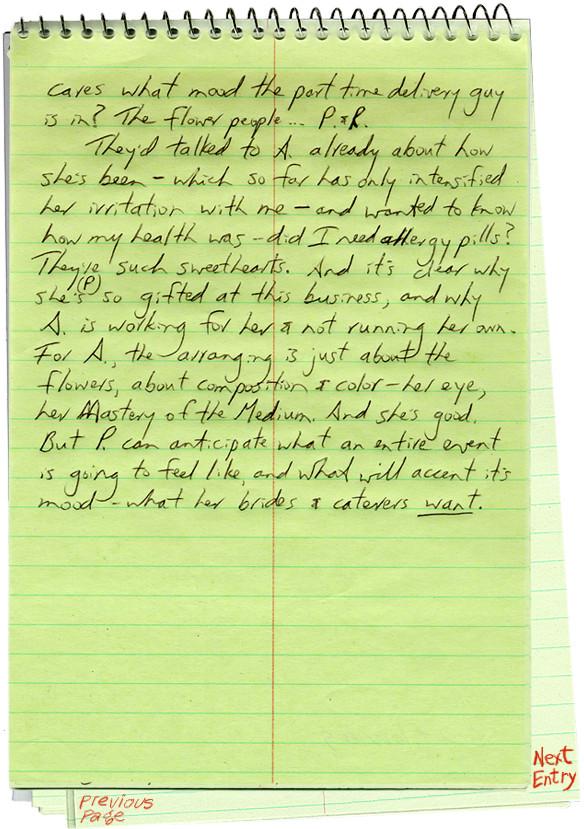 cares what mood the part time delivery guy
is in? The flower people... P. & R.
They'd talked to A. already about how
she's been – which so far has only intensified
her irritation with me – and wanted to know
how my health was – did I need allergy pills?
They're such sweethearts. And it's clear why
she's (P) so gifted at this business, and why
A. is working for her & not running her own.
For A., the arranging is just about the
flowers, about composition & color – her eye,
her Mastery of the Medium. And she's good.
But P. can anticipate what an entire event
is going to feel like, and what will accent it's
mood – what her brides & caterers want.
Next
Entry
Previous
Page